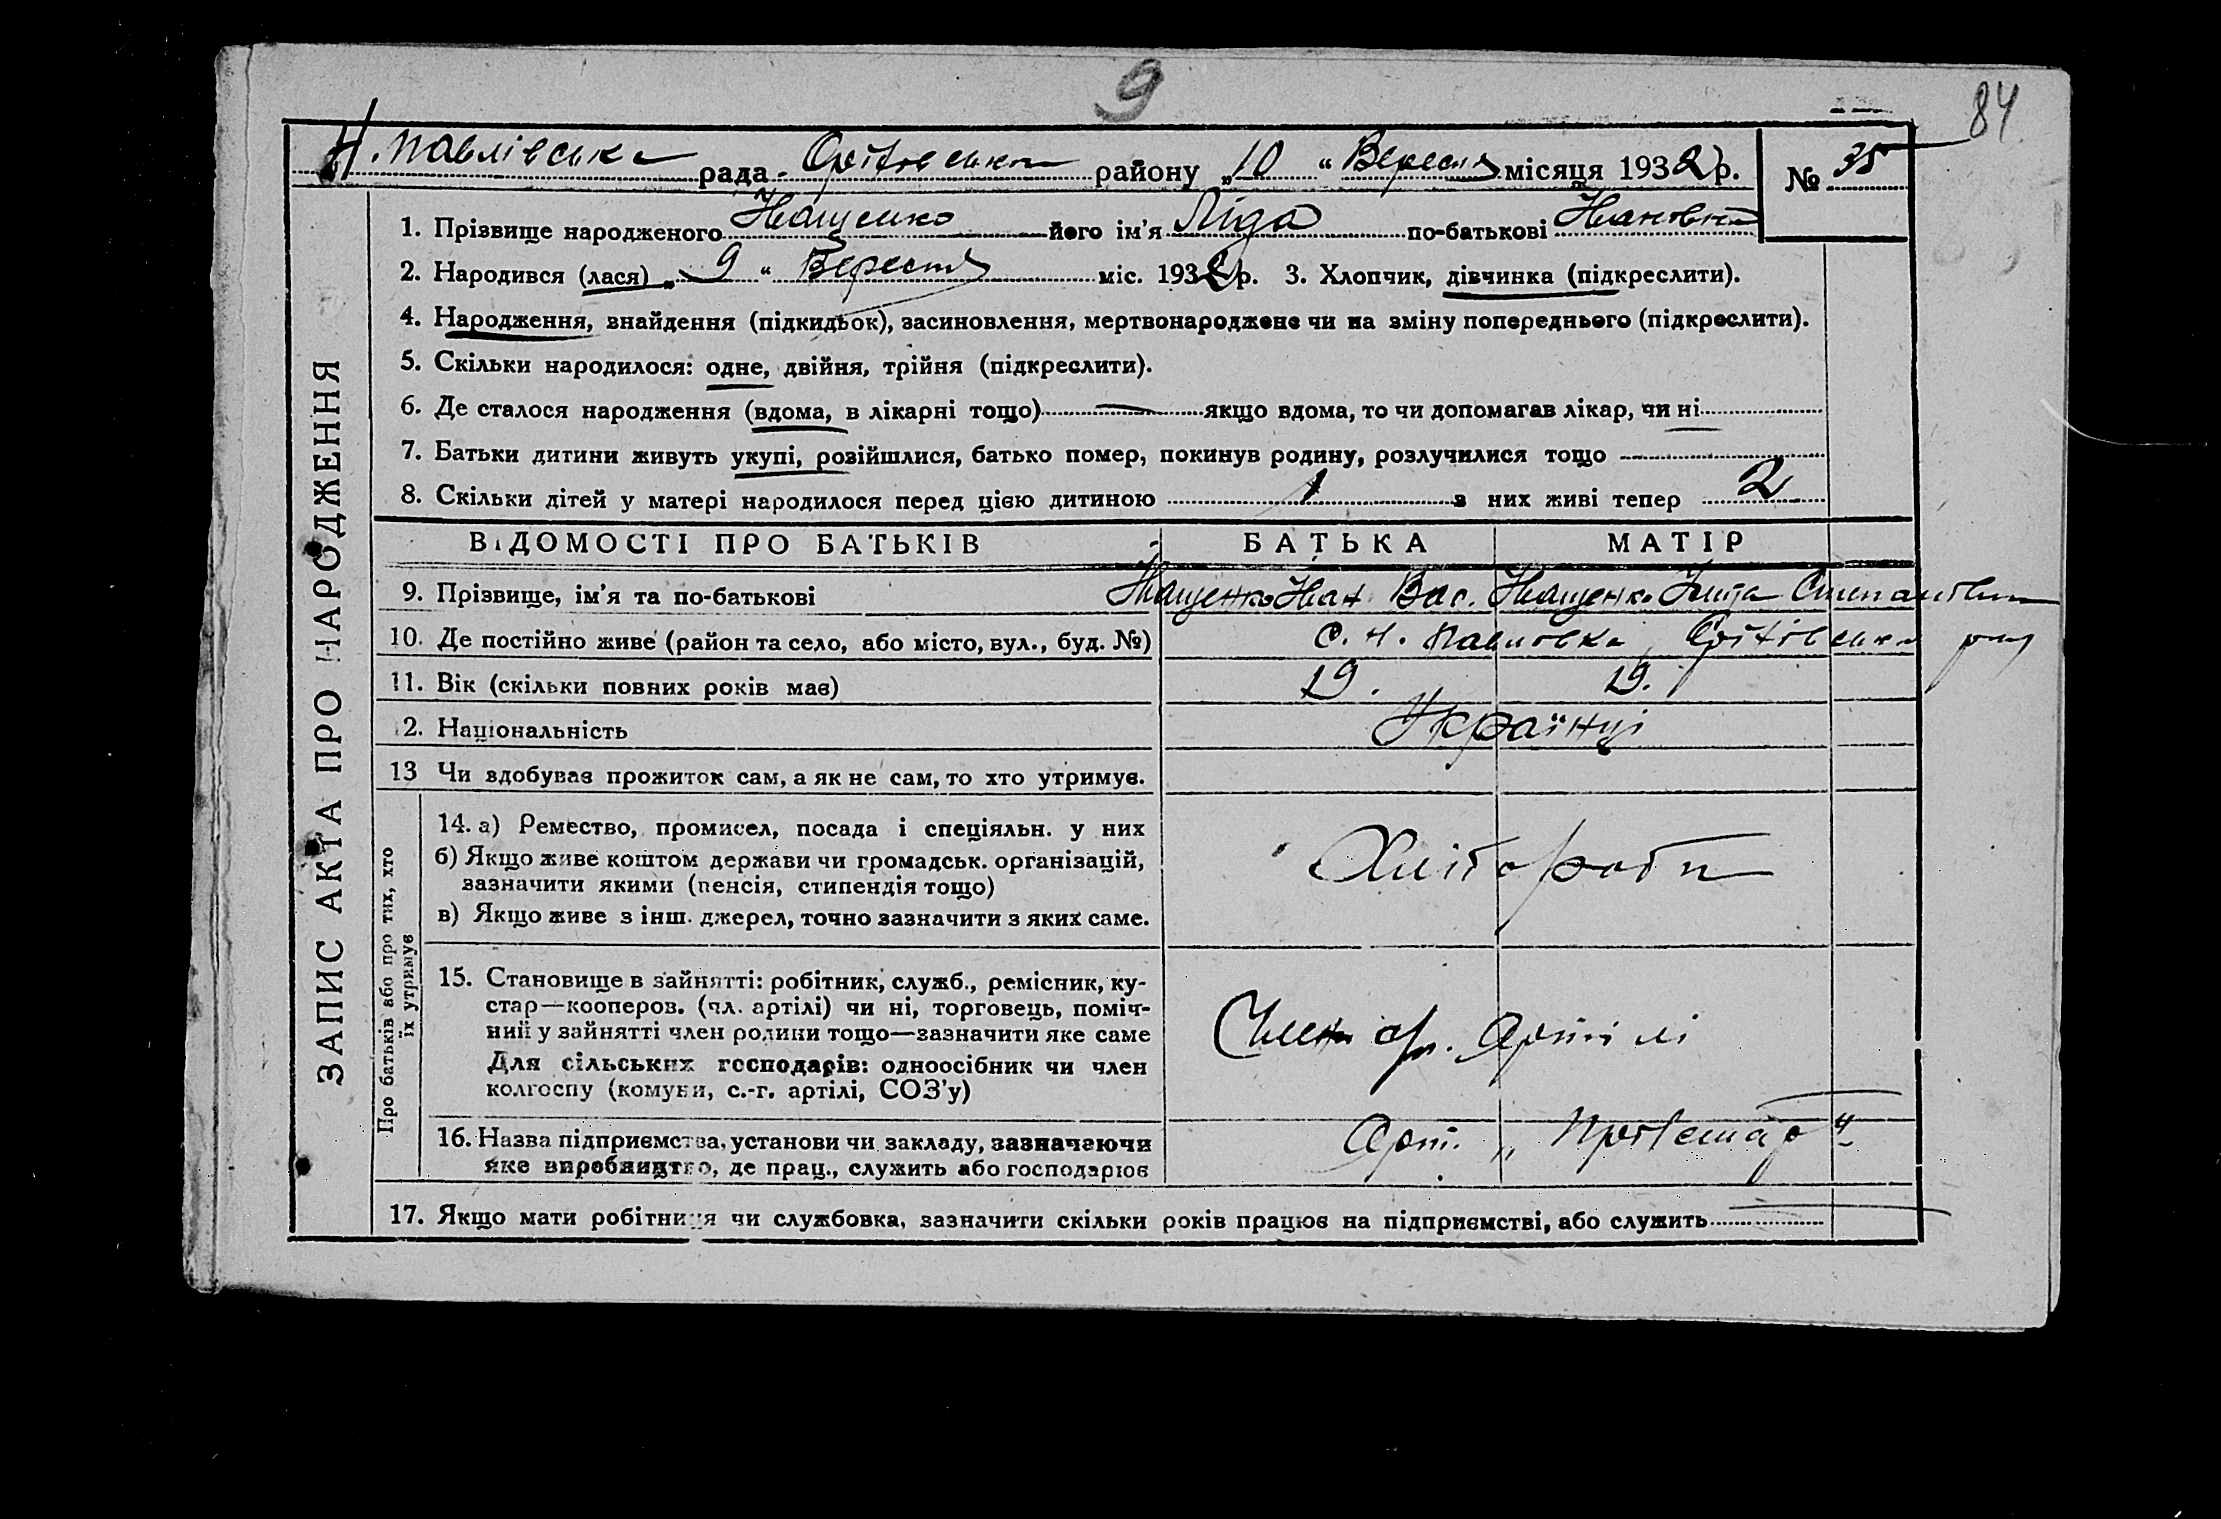 9
84
Н. Павлівська рада - Орітівська району „10“ Вересня місяця 1932 р. № 35
1. Прізвище народженого Іващенко його ім’я Ліда по-батькові Івановна
2. Народився (лася) „9“ Вересня міс. 1932 р. 3. Хлопчик, дівчинка (підкреслити).
4. Народження, знайдення (підкидьок), засиновлення, мертвонароджене чи на зміну попереднього (підкреслити).
5. Скільки народилося: одне, двійня, трійня (підкреслити).
6. Де сталося народження (вдома, в лікарні тощо) — якщо вдома, то чи допомагав лікар, чи ні
7. Батьки дитини живуть укупі, розійшлися, батько помер, покинув родину, розлучилися тощо
8. Скільки дітей у матері народилося перед цією дитиною 1 з них живі тепер 2
ЗАПИС АКТА ПРО НАРОДЖЕННЯ
ВІДОМОСТІ ПРО БАТЬКІВ БАТЬКА МАТІР
9. Прізвище, ім’я та по-батькові Іващенко Іван Вас. Іващенко Степановна
10. Де постійно живе (район та село, або місто, вул., буд. №) с. Н. Павловка
11. Вік (скільки повних років має) 19. 19.
12. Національність Українці
13 Чи здобуває прожиток сам, а як не сам, то хто утримує.
Про батьків або про тих, хто
їх утримує
14. а) Ремество, промисел, посада і спеціяльн. у них Хлібороби
б) Якщо живе коштом держави чи громадськ. організацій,
зазначити якими (пенсія, стипендія тощо)
в) Якщо живе з інш. джерел, точно зазначити з яких саме.
15. Становище в зайнятті: робітник, служб., ремісник, ку-
стар—кооперов. (чл. артілі) чи ні, торговець, поміч-
ний у зайнятті член родини тощо—зазначити яке саме
Член с/г. Артілі
Для сільських господарів: одноосібник чи член
колгоспу (комуни, с.-г. артілі, СОЗ’у)
16. Назва підприємства, установи чи закладу, зазначаючи Арт. „
яке виробництво, де прац., служить або господарює
17. Якщо мати робітниця чи службовка, зазначити скільки років працює на підприємстві, або служить